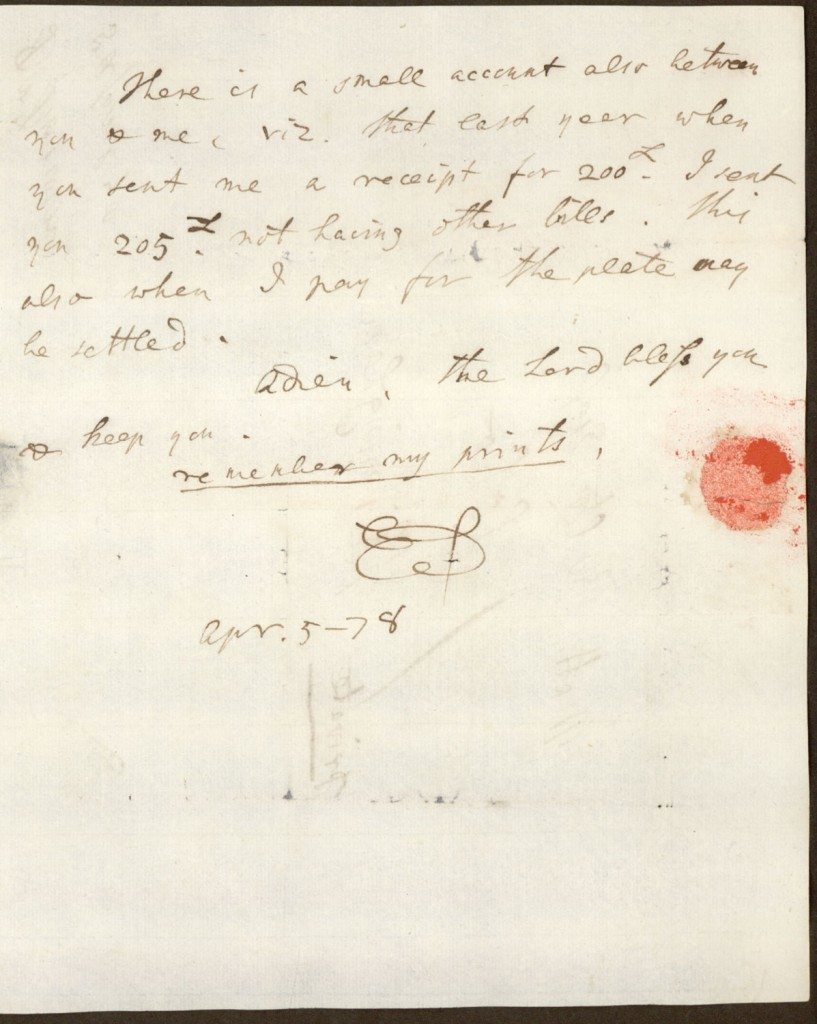 There is a small account also between
you & me, viz. that last year when
you sent me a receipt for 200£. I sent
you 205£. not having other bills. This
also when I pay for the plate may
be settled.
Adieu, the Lord bless you
& keep you.
remember my prints,
Apr. 5–78